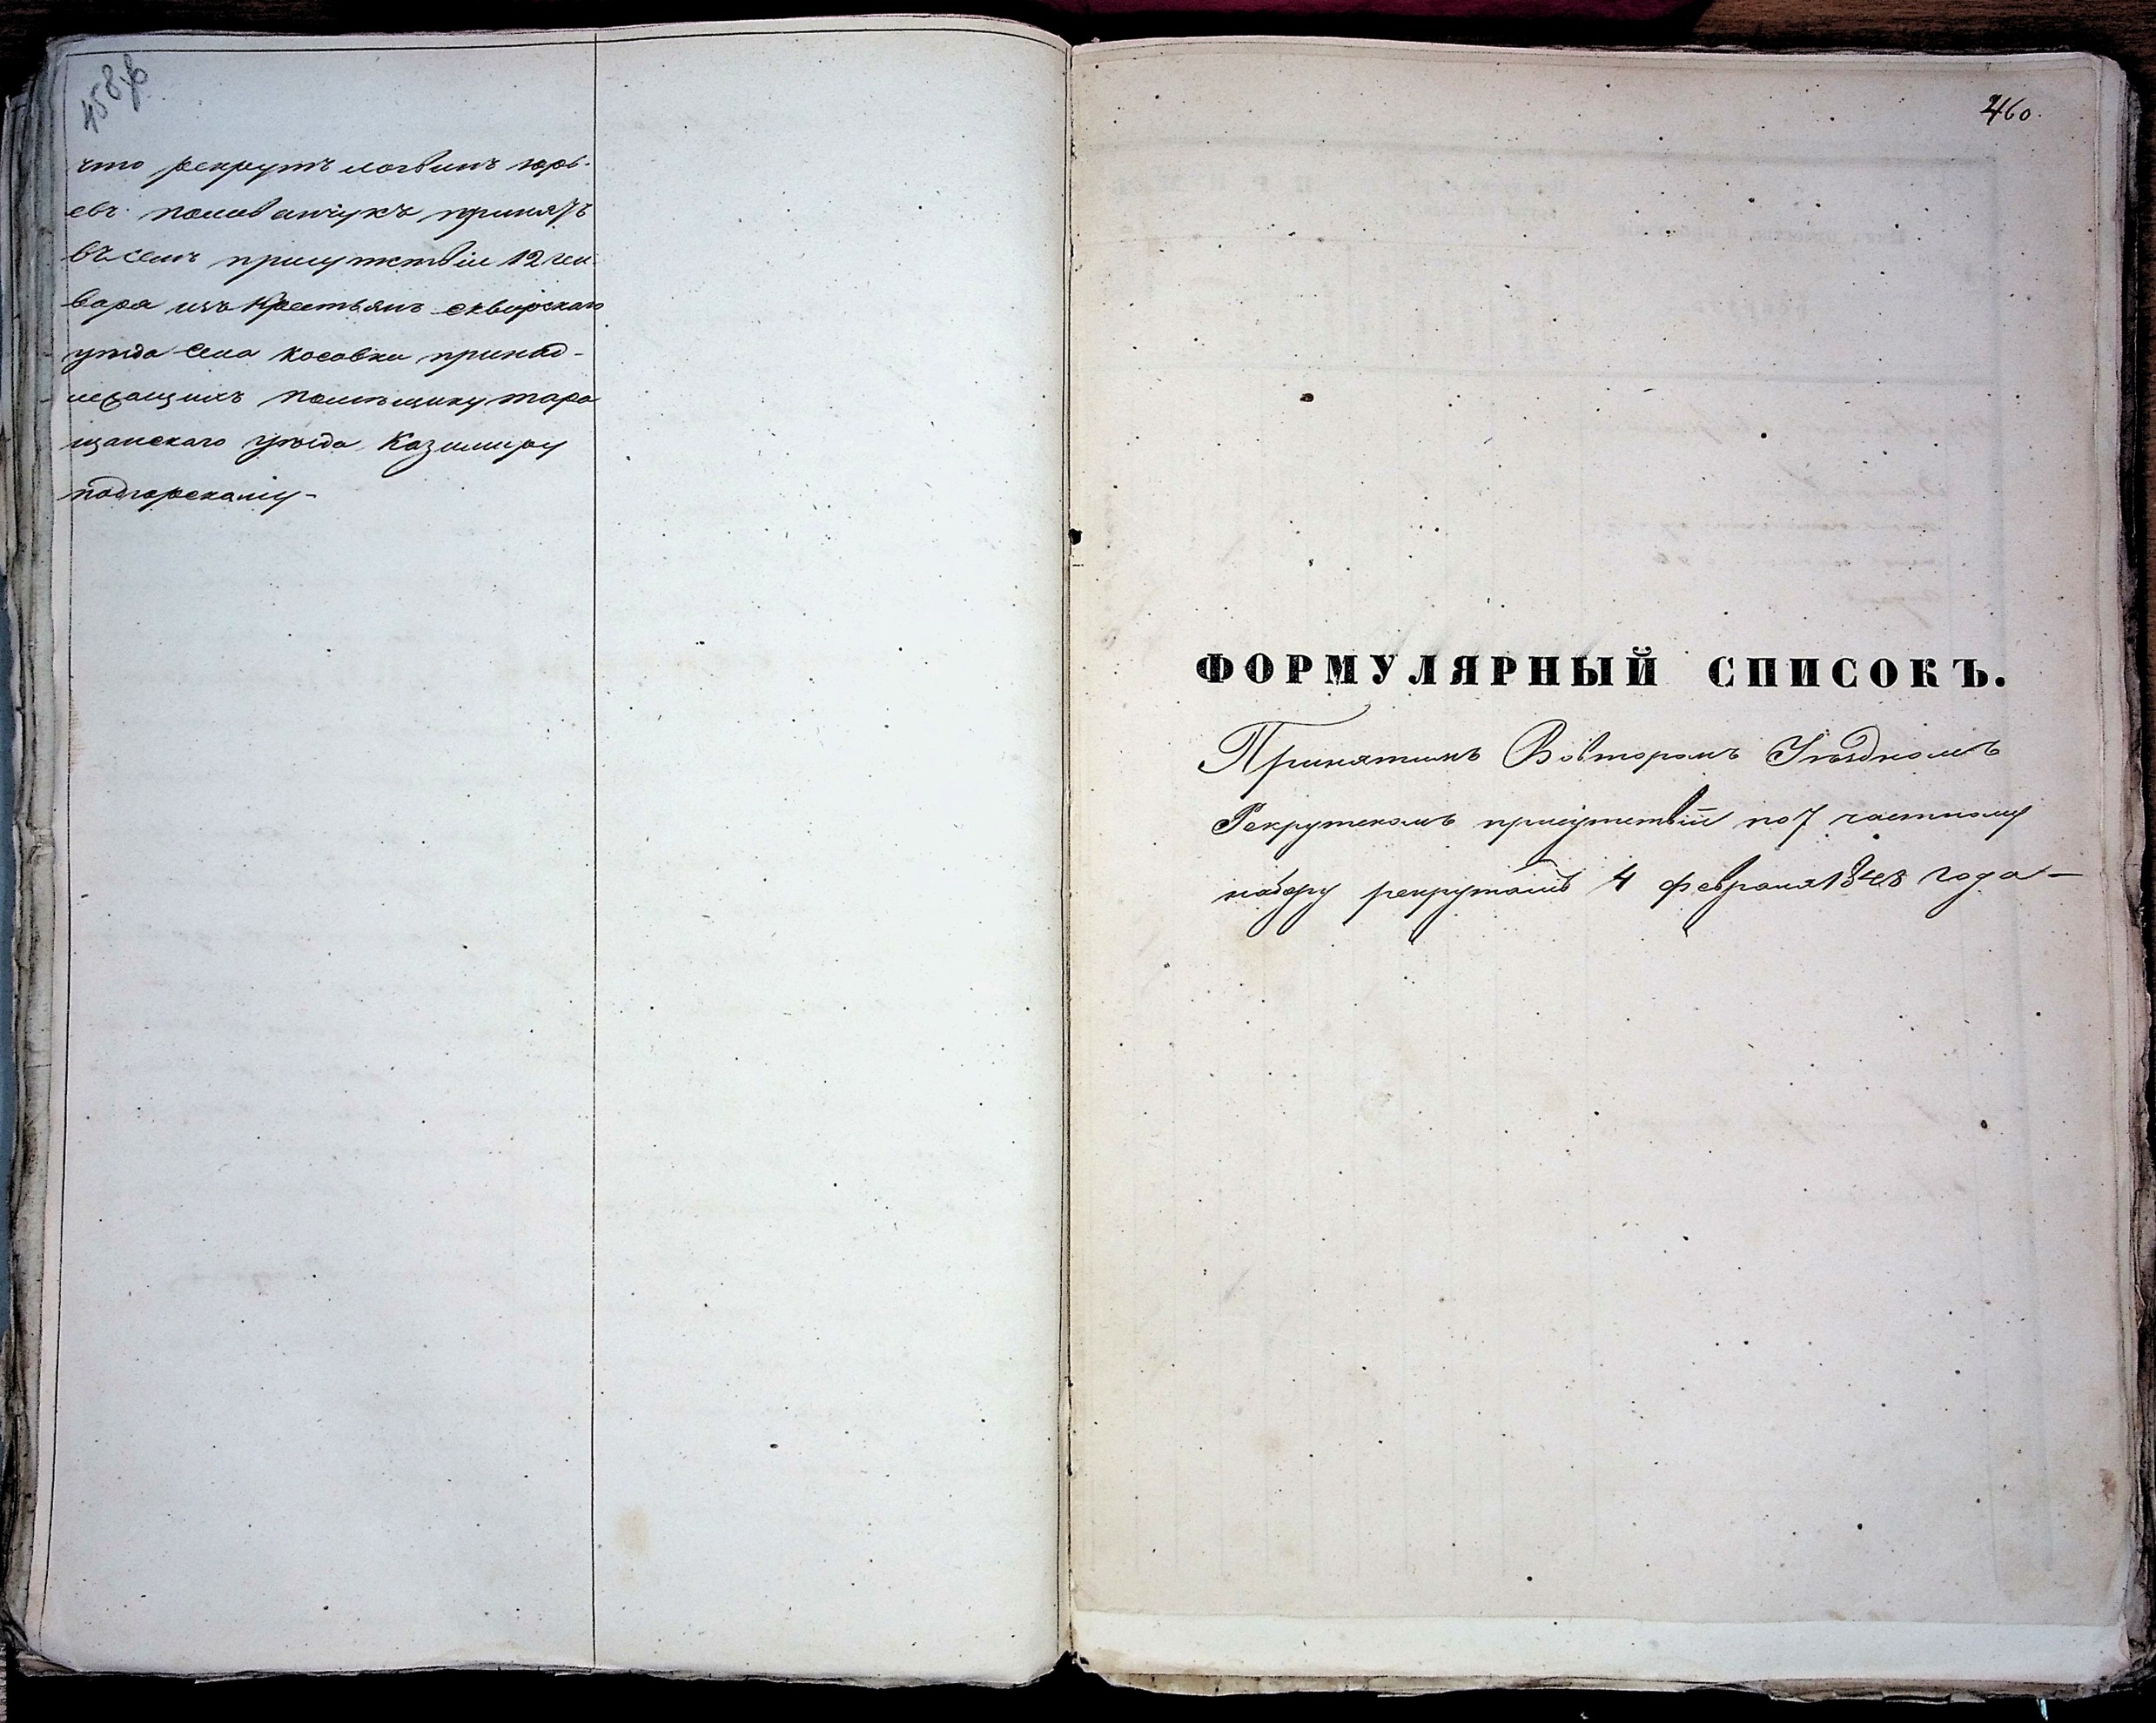 458об
что рекрутъ логвинъ юрь-
евъ полованчукъ принятъ
въ семъ присутствіи 12 ген-
варя изъ Крестьянъ сквирскаго
уѣзда села косовки принад-
лежащихъ помѣщику тара
щанскаго уѣзда Казимиру
подгорскому-
460.
ФОРМУЛЯРНЫЙ СПИСОКЪ.
Принятымъ Вовторомъ Уѣздномъ
Рекрутскомъ присутствіи по 7 частному
набору рекрутамъ 4 февраля 1848 года -